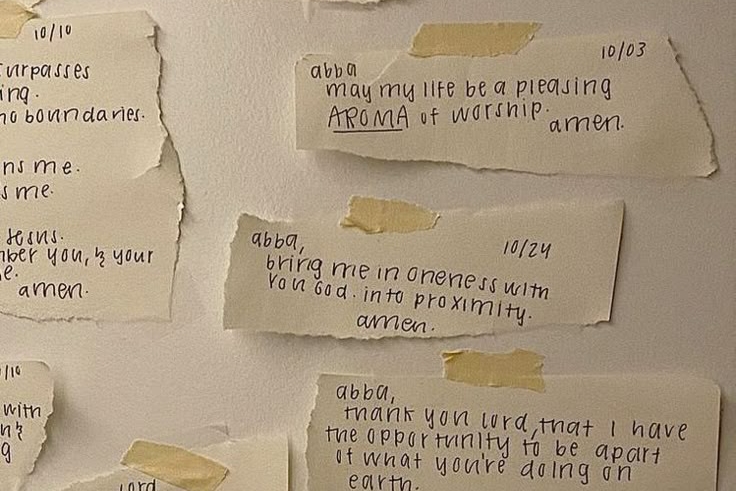 10/10
urpasses
ing.
no boundaries.
ns me.
s me.
Jesus.
ber you, & your
e.
amen.
10/03
abba
may my life be a pleasing
AROMA of worship.
amen.
abba,
10/24
bring me in oneness with
you God. into proximity.
amen.
/10
with
n &
g
lord
abba,
thank you lord, that I have
the opportunity to be apart
of what you're doing on
earth.